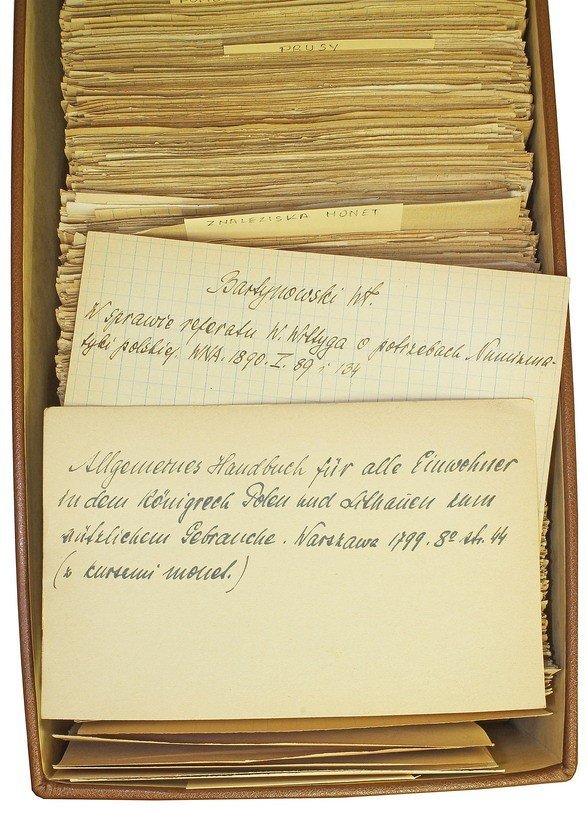 PRUSY
ZNALEZISKA MONET
Bartynowski Wł.
W sprawie referatu W. Wittyga o potrzebach Numizma-
tyki polskiej. WNA. 1890. I. 89 i 134
Allgemeines Handbuch für alle Einwohner
in dem Königreich Polen und Lithauen zum
nützlichem Gebrauche. Warszawa 1799. 8º str. 44
(z kursemi monet.)